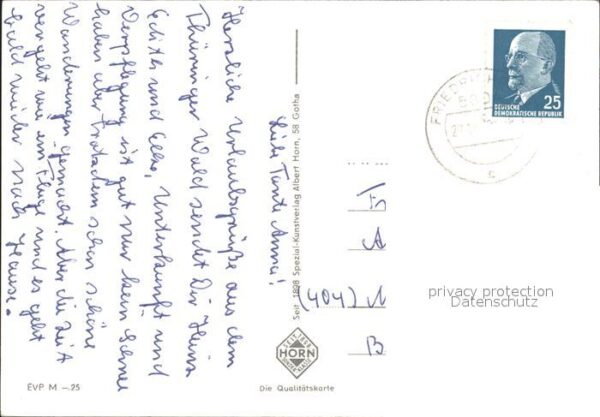 Liebe Tante Anna!
Herzliche Urlaubsgrüße aus dem
Thüringer Wald sendet Dir Heinz
Edith und Elke, Unterkunft und
Verpflegung ist gut nur kein Schnee
haben aber trotzdem schon schöne
Wanderungen gemacht. Aber die Zeit
vergeht wie im Fluge und es geht
bald wieder nach Hause.
EVP M –.25
Seit 1898 Spezial-Kunstverlag Albert Horn, 58 Gotha
HORN
Die Qualitätskarte
FRIEDRI
DEUTSCHE
DEMOKRATISCHE REPUBLIK
25
Fr
A
(404) N
B
privacy protection
Datenschutz